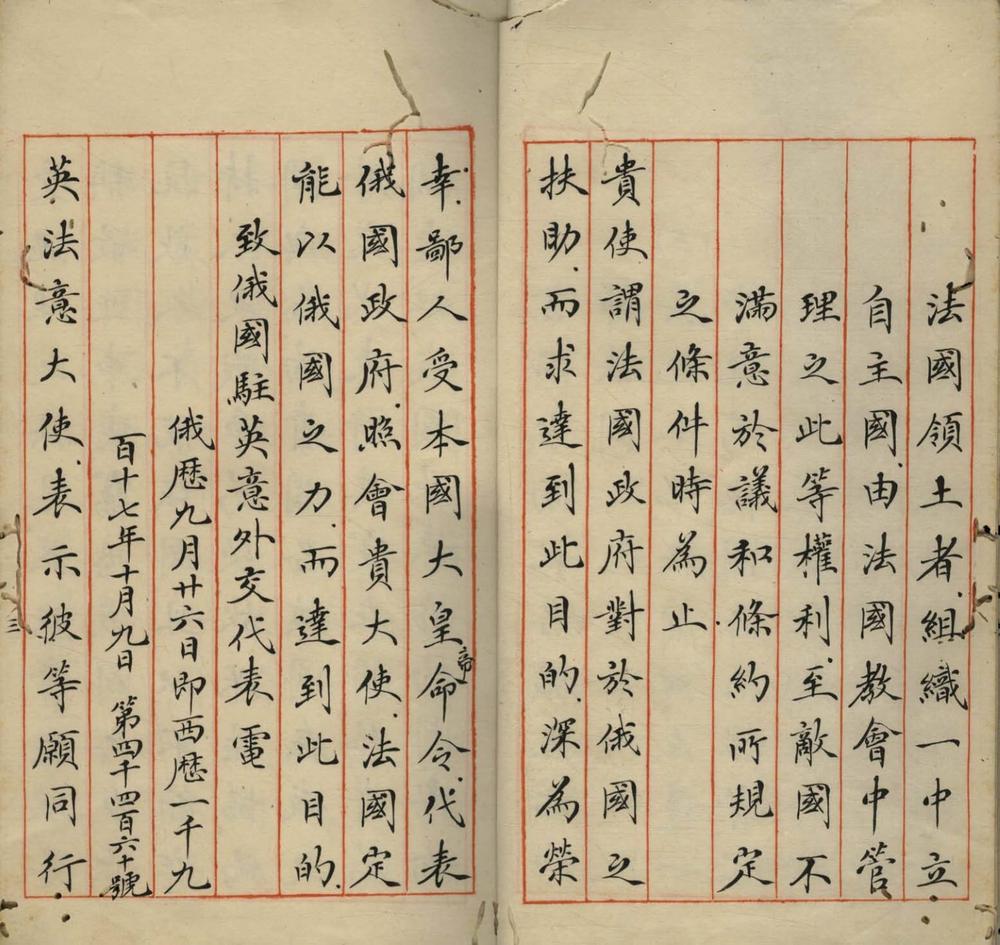 法國領土者組織一中立
自主國由法國教會中管
理之此等權利至敵國不
滿意於議和條約所規定
之條件時為止
貴使謂法國政府對於俄國之
扶助而求達到此目的深為榮
幸鄙人受本國大皇帝命令代表
俄國政府照會貴大使法國定
能以俄國之力而達到此目的
致俄國駐英意外交代表電
俄歷九月廿六日即西歷一千九
百十七年十月九日 第四千四百六十號
英法意大使表示彼等願同行
三